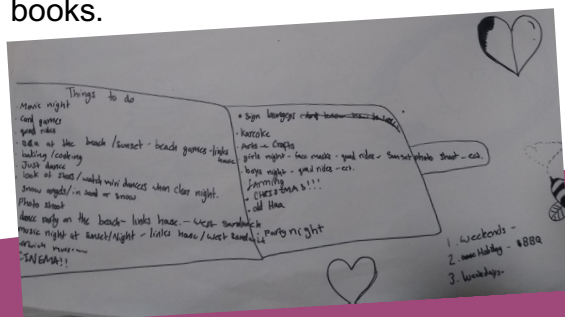 books.
Things to do
Movie night
- Card games
- quad rides
- BBQ at the beach/sunset - beach games - links house
- baking/cooking
- Just dance
- look at stars/watch mini dancers when clear night.
snow angels/in sand or snow
Photo shoot
dance party on the beach - links house. - west sandwick
music night at sunset/night - links house/west sandwick
CINEMA!!
• Sign language
- Karaoke
- Arts + Crafts
- girls night - face masks - quad rides - Sunset photo shoot - ect.
- boys night - quad rides - ect.
- farming
- CHRISTMAS!!!
- old Haa
Party night
1. Weekends -
2. Holiday - BBQ
3. Weekdays-